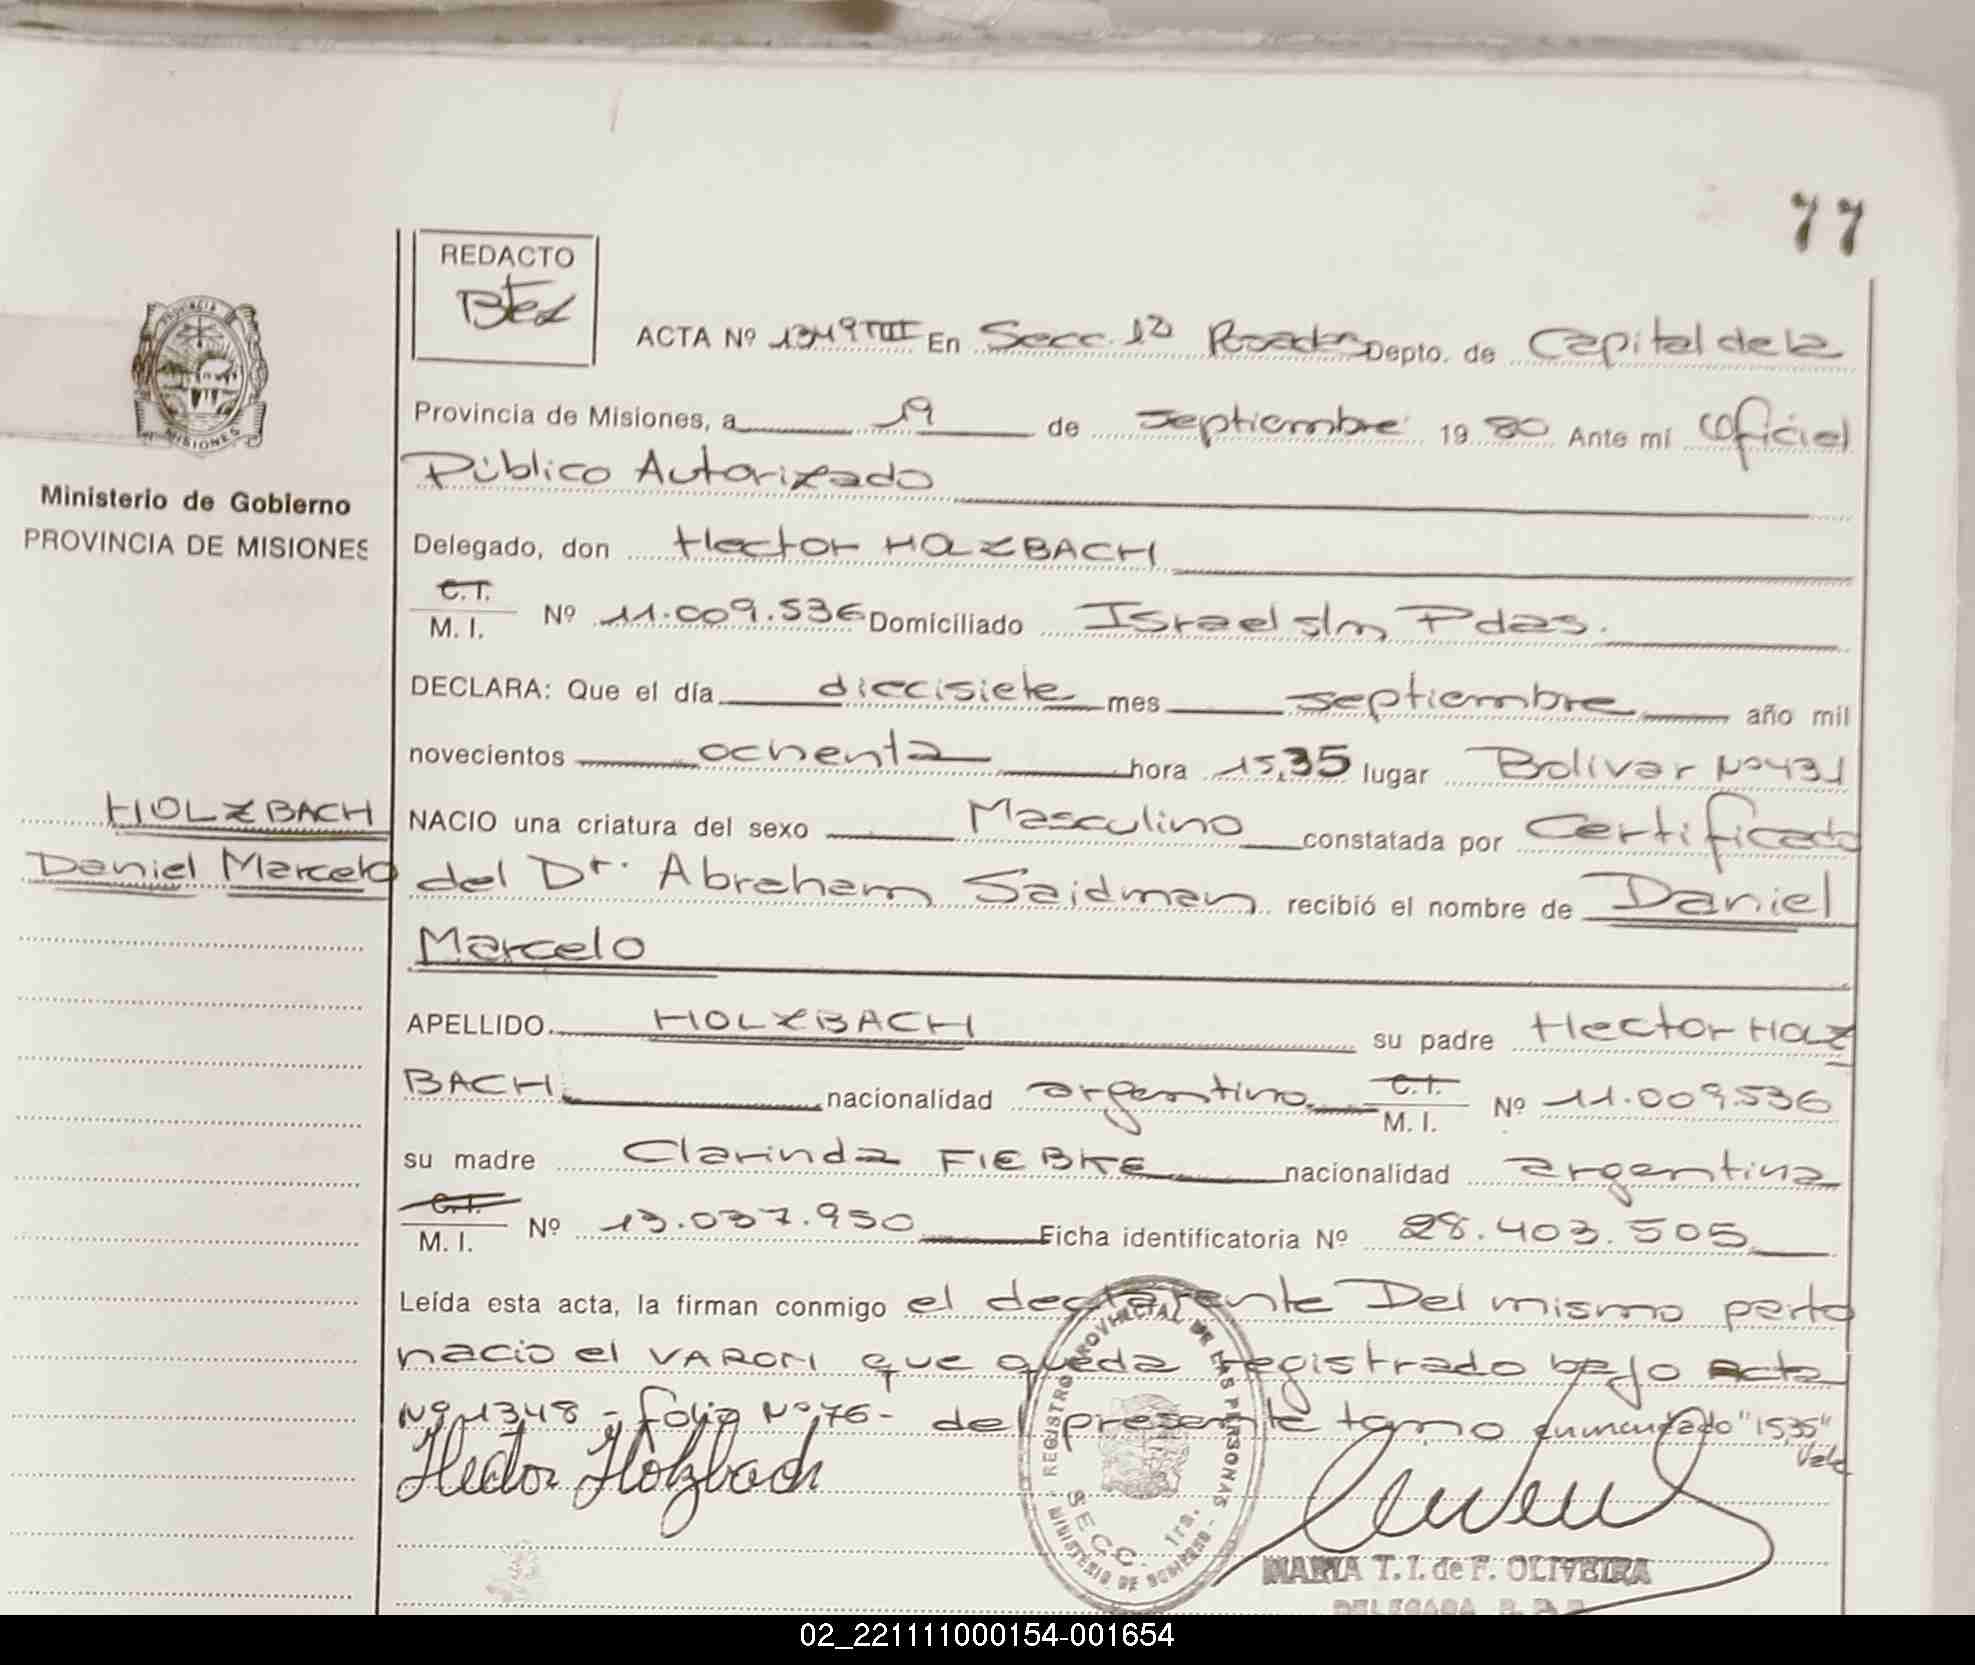 77
REDACTO
ACTA Nº 1349 TIII En Secc. 1ª Posadas Depto. de Capital de la
PROVINCIA
MISIONES
Provincia de Misiones, a 19 de septiembre 19 80 Ante mí Oficial
Público Autorizado
Ministerio de Gobierno
PROVINCIA DE MISIONES
Delegado, don Hector HOLZBACH
C.I.
M. I. Nº 11.009.536 Domiciliado Israel s/n Pdas.
DECLARA: Que el día diecisiete mes septiembre año mil
novecientos ochenta hora 15,35 lugar Bolivar Nº 431
HOLZBACH
Daniel Marcelo
NACIO una criatura del sexo Masculino constatada por Certificado
del Dr. Abraham Saidman recibió el nombre de Daniel
Marcelo
APELLIDO HOLZBACH su padre Hector HOLZ
BACH nacionalidad argentino C.I. M. I. Nº 11.009.536
su madre Clarinda FIEBKE nacionalidad argentina
C.I.
M. I. Nº 13.037.950 Ficha identificatoria Nº 28.403.505
Leída esta acta, la firman conmigo el declarente Del mismo parto
nacio el VARON que queda registrado bajo acta
Nº 1348 - folio Nº 76 - del presente tomo enmendado "15,35"
Vale
Hector Holzbach
REGISTRO PROVINCIAL DE LAS PERSONAS
SECC. 1ra.
MINISTERIO DE GOBIERNO
MARIA T. I. de F. OLIVEIRA
DELEGADA R. P. P.
02_221111000154-001654